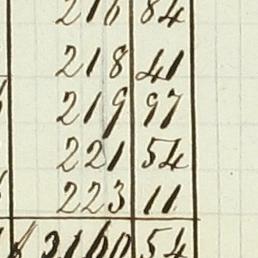 216 84
218 41
219 97
221 54
223 11
3160 54